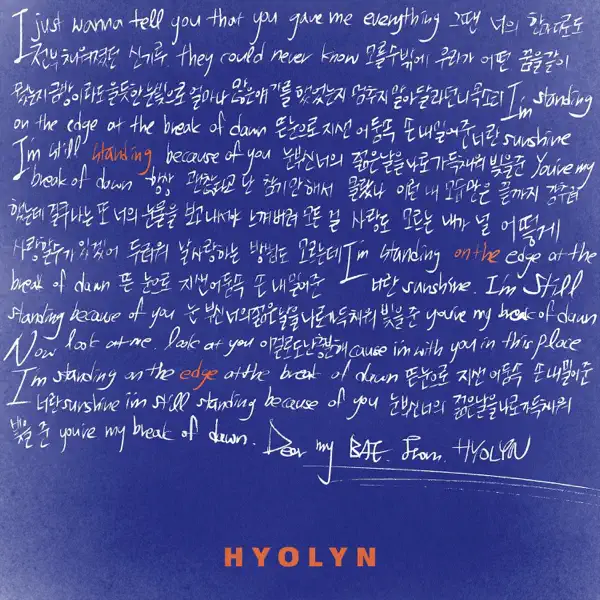 I just wanna tell you that you gave me everything 그땐 너의 합자로도
전부 채워졌던 신기루 they could never know 모를수밖에 우리가 어떤 꿈을같이
꿨는지 금방이라도 울듯한 눈빛으로 얼마나 많은얘기를 했었는지 멈추지 말아달라던니목소리 I'm standing
on the edge at the break of dawn 뜬눈으로 지샌 어둠속 손내밀어준 너란 sunshine
I'm still standing because of you 눈부신너의 젊은날을나로가득채워빛을준 You're my
break of dawn 항상 괜찮다고 난 참기만해서 몰랐나 이런 내 모습만은 끝까지 감추려
했는데 결국나는 또 너의 눈물을 보고내서야 느껴버려 모든 걸 사랑도 모르는 내가 널 어떻게
사랑할수가 있겠어 두려워 날사랑하는 방법도 모르는데 I'm standing on the edge at the
break of dawn 뜬 눈으로 지샌어둠속 손내밀어준 너란 sunshine. I'm Still
standing because of you 눈 부신너의젊은날을나로가득채워 빛을 준 you're my break of dawn
Now look at me. look at you 이걸로도난괜찮게 cause i'm with you in this place
I'm standing on the edge at the break of dawn 뜬눈으로 지샌 어둠속 손내밀어준
너란 sunshine i'm still standing because of you 눈부신너의 젊은날을나로가득채워
빛을 준 you're my break of dawn. Dear my BAE. From. HYOLYN
HYOLYN